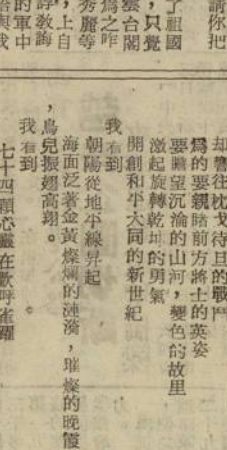 請你把
了祖國
，只覺
雲台閣
為之昨
秀麗等
，上自
諄教誨
的軍中
培與我
却嚮往枕戈待旦的戰鬥
爲的要親睹前方將士的英姿
要瞻望沉淪的山河，變色的故里
激起旋轉乾坤的勇氣
開創和平大同的新世紀
我看到
朝陽從地平線昇起
海面泛著金黃燦爛的漣漪，璀燦的晚霞
，鳥兒振翅高翔。
我看到。
七十四顆心靈在歡呼雀躍